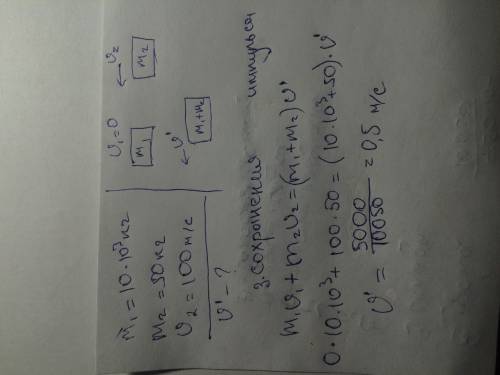 m₁ = 10·10³ кг
m₂ = 50 кг
υ₂ = 100 м/с
υ' - ?
υ₁ = 0
m₁
← υ'
m₁+m₂
← υ₂
m₂
З. сохранения импульса
m₁υ₁ + m₂υ₂ = (m₁+m₂)υ'
0·10·10³ + 100·50 = (10·10³+50)·υ'
υ' = 5000/10050 = 0,5 м/с